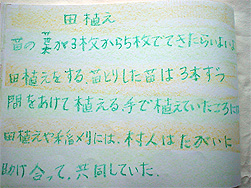 田植え
苗の葉が3枚から5枚でてきたらいよいよ
田植えをする。苗とりした苗は3本ずつ
間をあけて植える。手で植えていたころに
田植えや稲メリには、村人はたがいに
助け合って、共同していた。